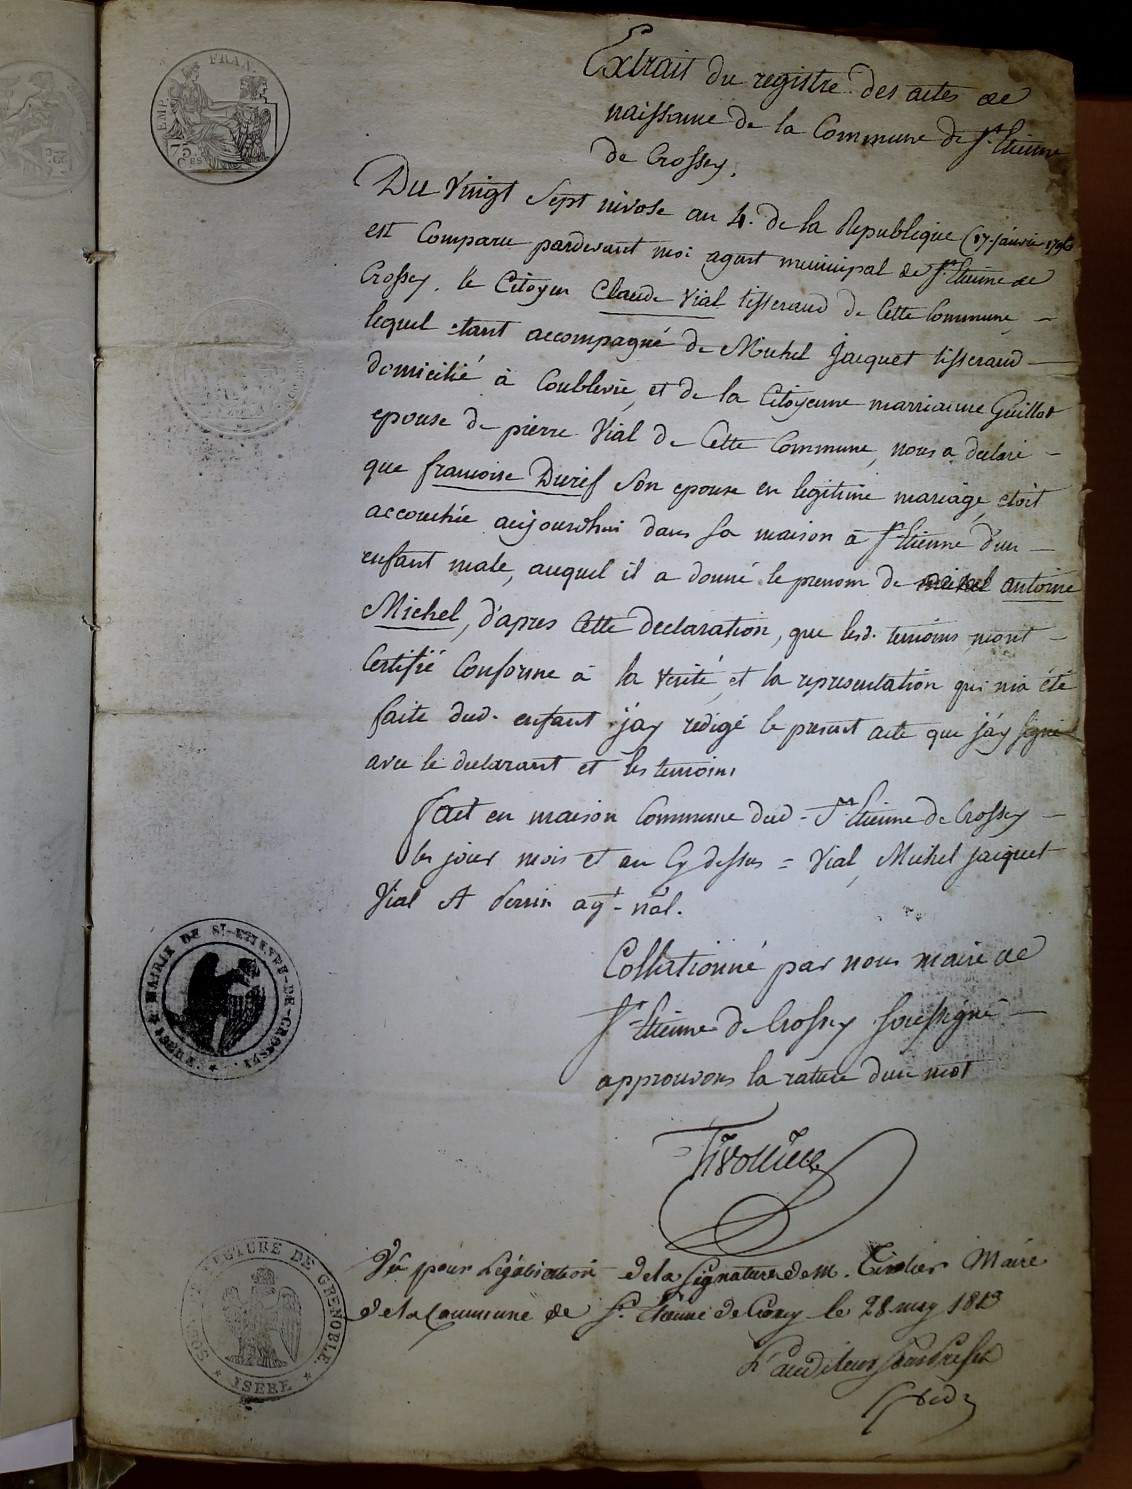 EMP. FRAN.
75 CES
Extrait du registre des actes de
naissance de la Commune de St. Etienne
de Crossey.
Du vingt sept nivose an 4. de la Republique (17. janvier 1796
est Comparu pardevant moi agent municipal de St. Etienne de
Crossey. le Citoyen Claude Vial tisserand de Cette Commune, –
lequel etant accompagné de Michel Jacquet tisserand –
domicilié à Coublevie, et de la Citoyenne marrianne Guillot
epouse de pierre Vial de Cette Commune, nous a declaré –
que francoise Durif son epouse en legitime mariage, etoit
accouchée aujourdhui dans sa maison à St. Etienne d'un –
enfant male, auquel il a donné le prenom de antoine
Michel, d'apres Cette declaration, que lesd. temoins m'ont –
Certifié Conforme à la verité, et la representation qui m'a été
faite dud. enfant j'ay redigé le present acte que j'ay signé
avec le declarant et les temoins
fait en maison Commune dud. St. Etienne de Crossey –
les jour mois et an Cy dessus = Vial, Michel jacquet
Vial et Perrin agt. nal.
Collationné par nous maire de
St. Etienne de Crossey soussigné –
approuvons la rature d'un mot
Tivollier
MAIRIE DE ST-ETIENNE-DE-CROSSEY. * (ISERE) *
Vû pour Légalisation de la signature de M. Tivolier Maire
de la Commune de St. Etienne de Crossey le 28 may 1813
L'auditeur Sous Prefet
SOUS-PREFECTURE DE GRENOBLE. * ISERE *